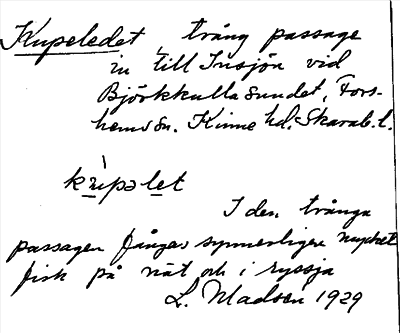 Kupeledet, trång passage
in till Insjön vid
Björkkulla sundet, Fors-
hems sn. Kinne hd. Skarab. l.
kùpəlet
I den trånga
passagen fångas synnerligen mycket
fisk på nät och i ryssja
L. Madsén 1929